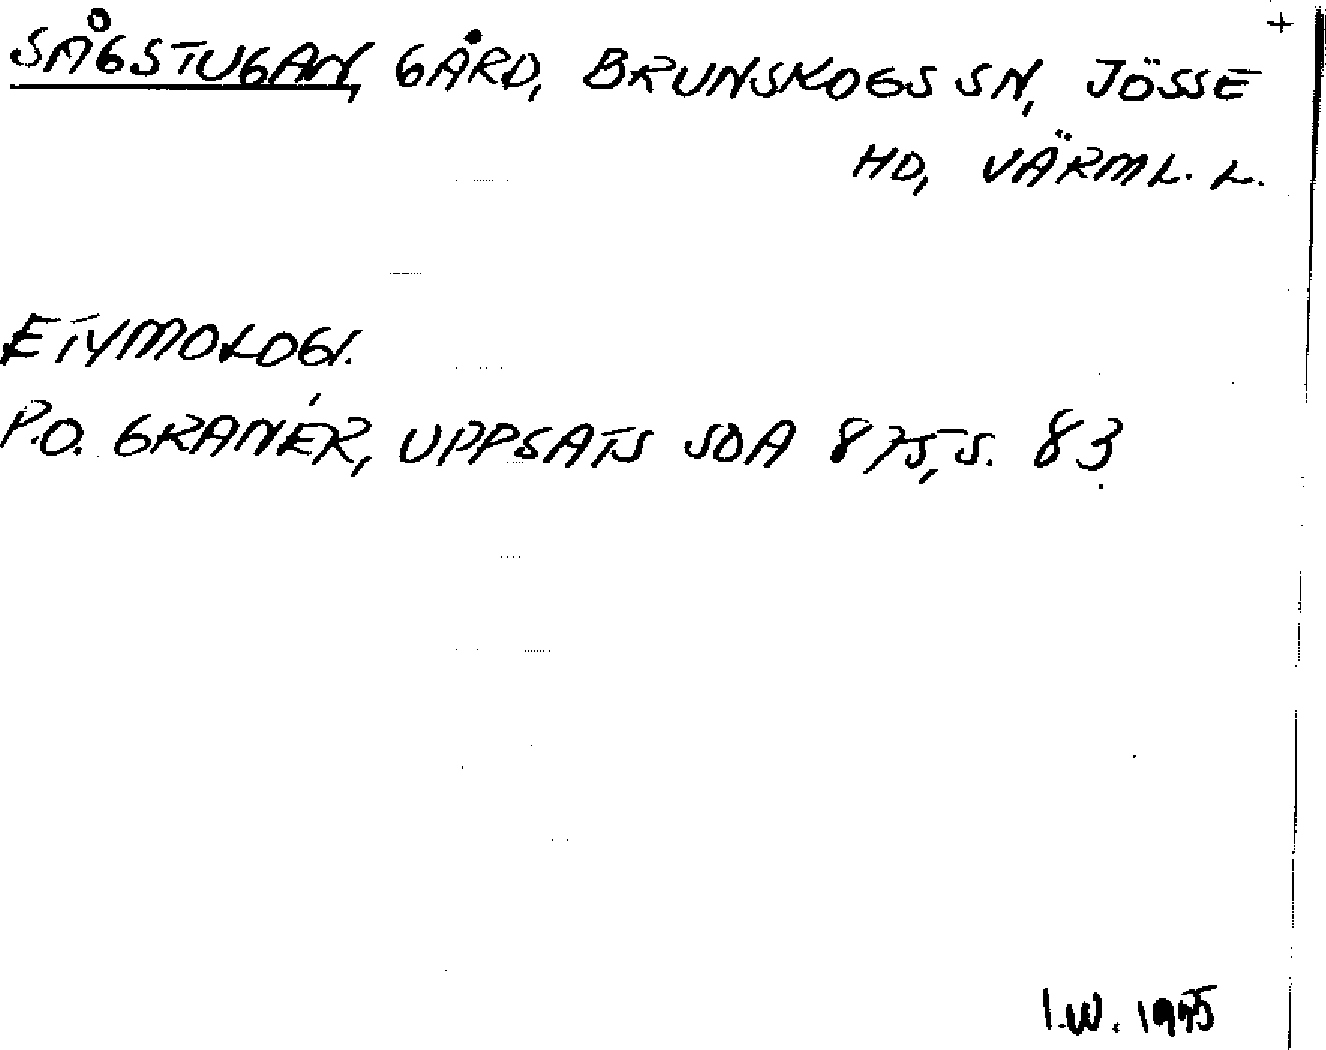 SÅGSTUGAN, GÅRD, BRUNSKOGS SN, JÖSSE
HD, VÄRML. L.
ETYMOLOGI.
P.O. GRANÉR, UPPSATS SOA 875, S. 83.
I.W. 1975